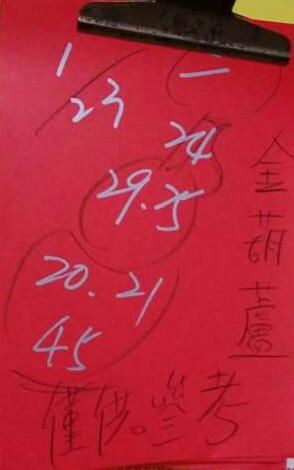 1 一
23
24
29.25
20.21
45
金葫蘆
僅供參考